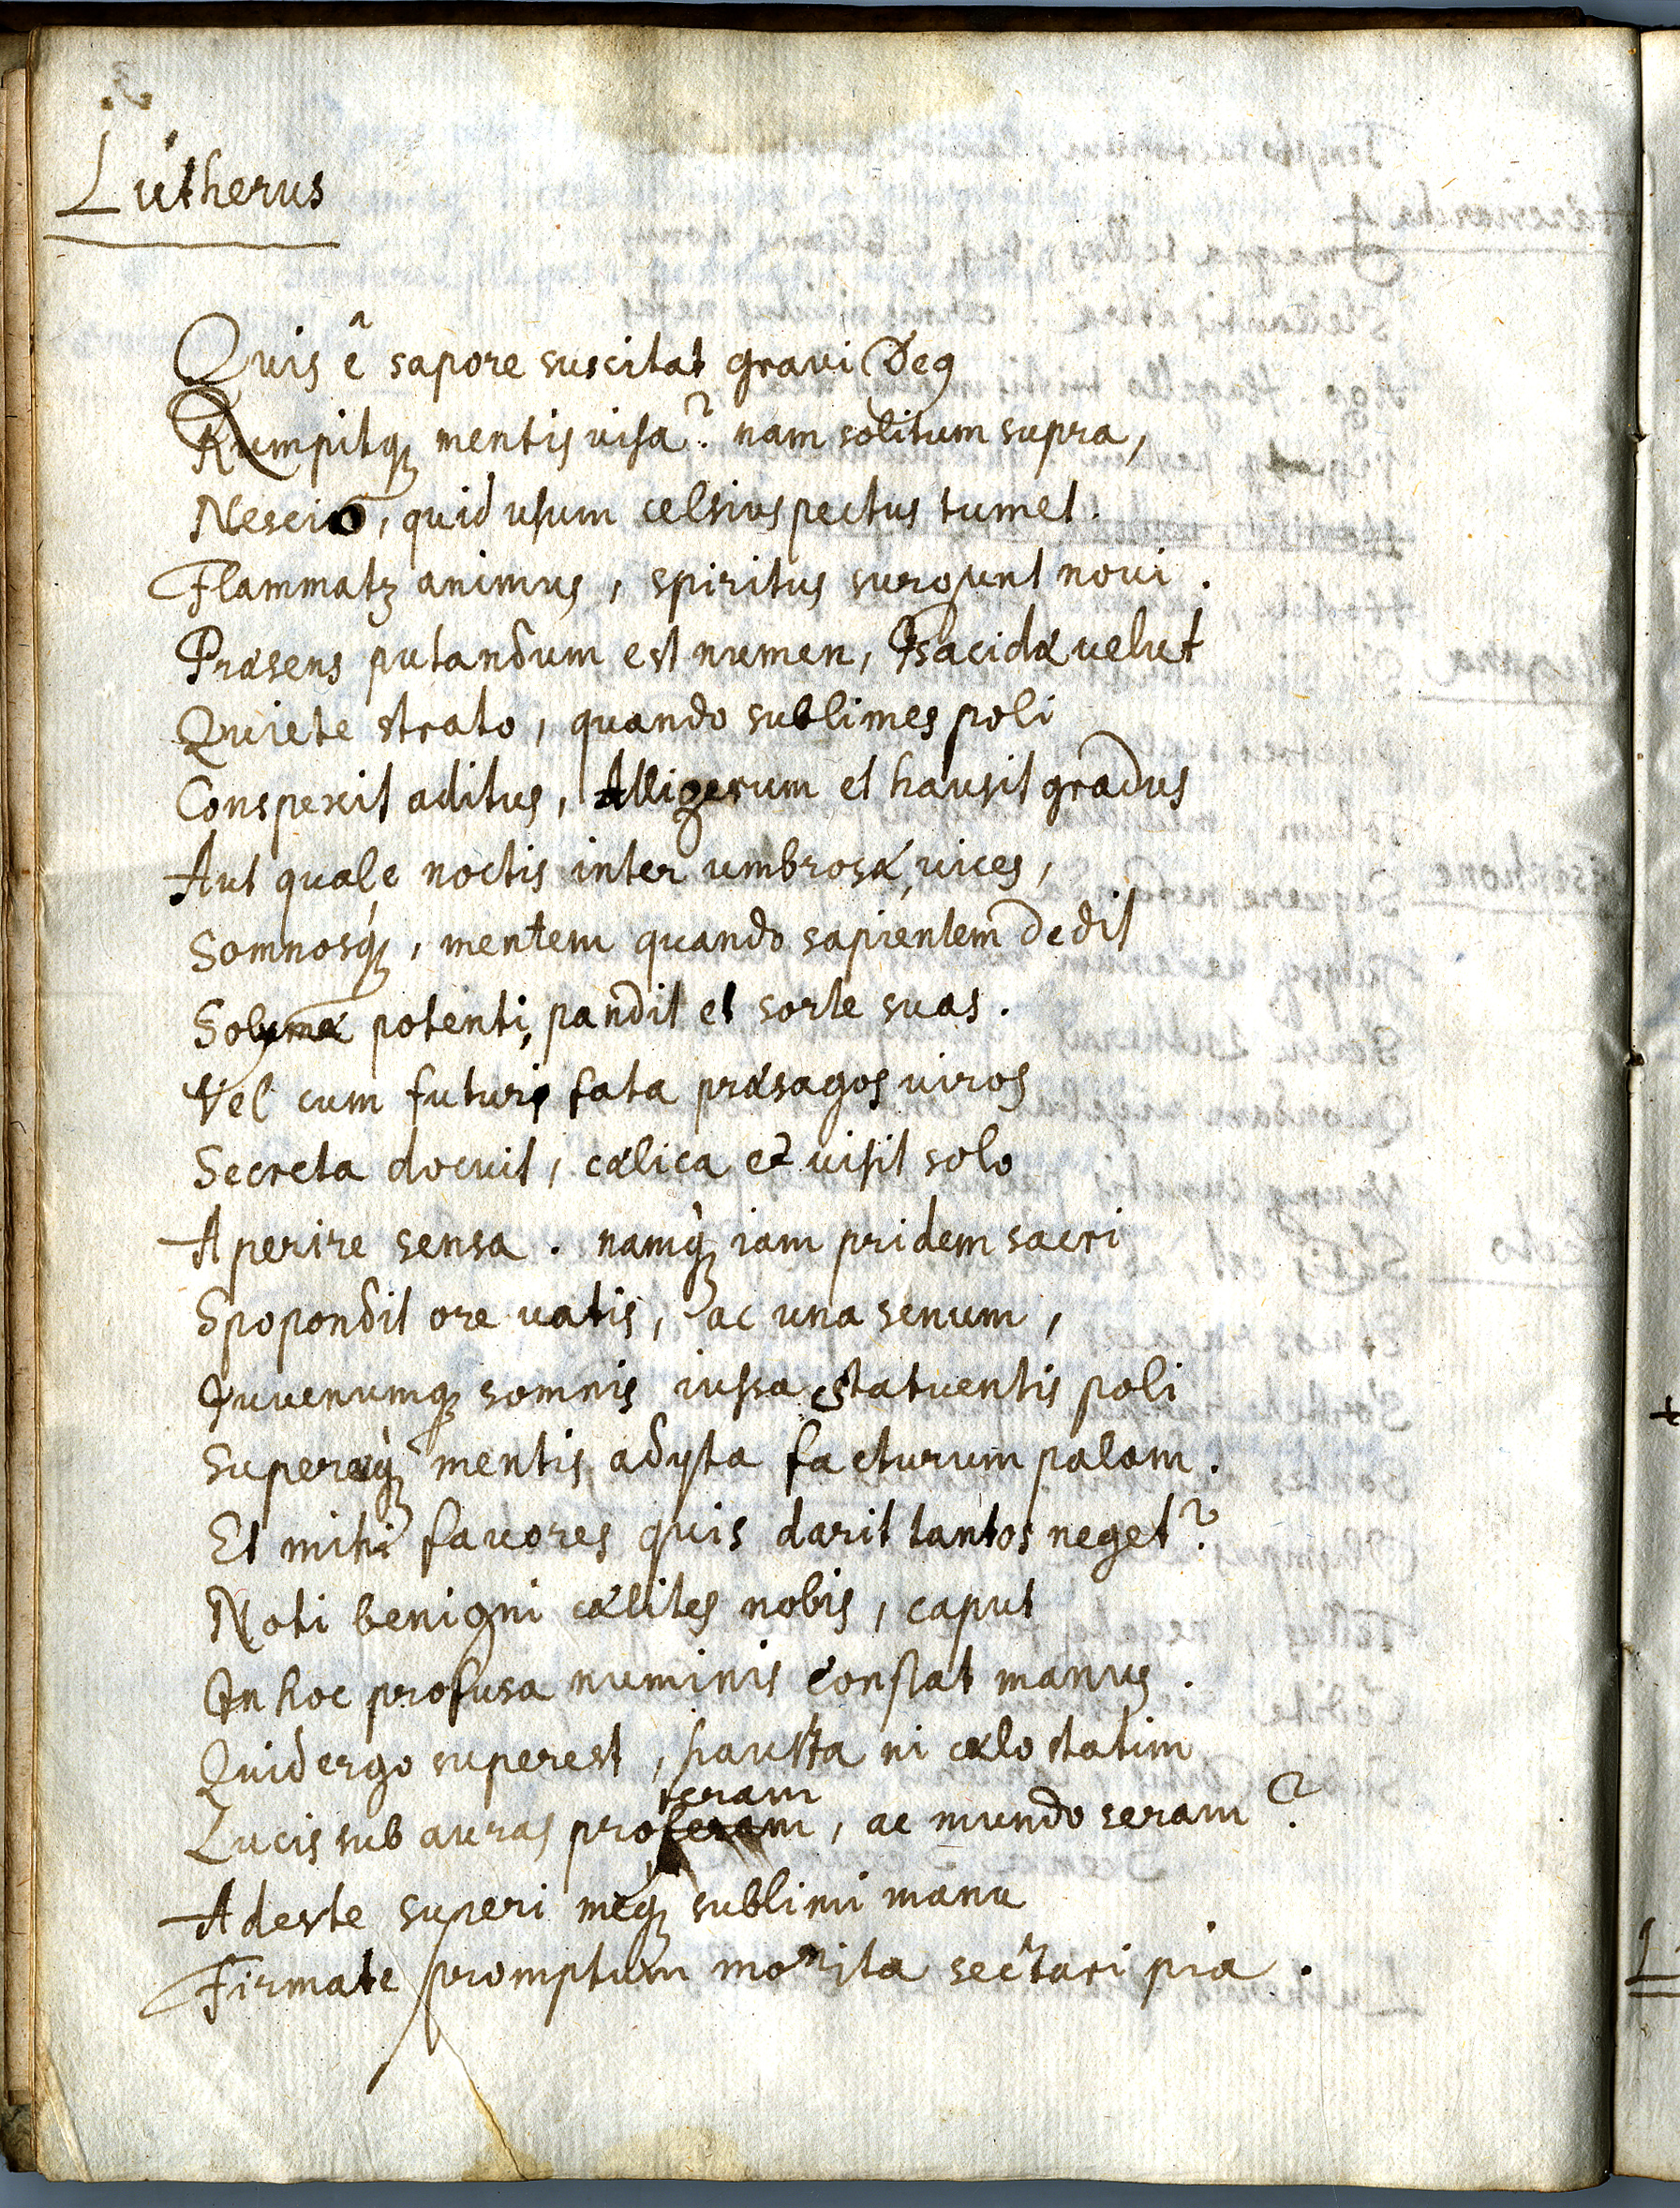 Lutherus
Quis ê sapore suscitat gravi Deq
Rumpitq; mentis visa? nam solitum supra,
Nescio, quid usum celsius pectus tumet.
Flammatz animus, spiritus surgunt novi.
Præsens putandum est numen, Isacidæ velut
Quiete strato, quando sublimes poli
Conspexit aditus, Alligerum et hausit gradus
Aut quale noctis inter umbrosæ vices,
Somnosq́;, mentem quando sapientem dedit
Solymæ potenti, pandit et sorte suas.
Vel cum futuri fata præsagos viros
Secreta docuit, cælica et visit solo
Aperire sensa. namq́; iam pridem sacri
Spopondit ore vatis, hac una senum,
Iuvenumq; somnis iussa statuentis poli
Superæq́; mentis adyta facturum palam.
Et mihi favores quis darit tantos neget?
Noti benigni cælites nobis, caput
In hoc profusa numinis constat manus.
Quid ergo superest, hausta ni cælo statim
feram
Lucis sub auras proferam, ac mundo seram?
Adeste superi meq; sublimi manu
Firmate promptum monita sectari pia.